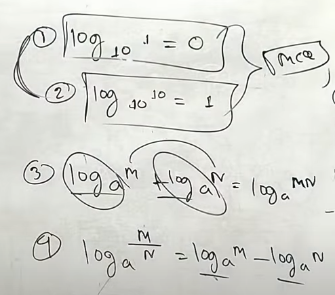 ① log₁₀ 1 = 0
② log₁₀ 10 = 1
MCQ
③ logₐ M + logₐ N = logₐ MN
④ logₐ M/N = logₐ M − logₐ N